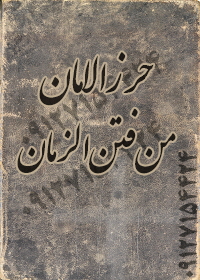 حرز الامان
من فتن الزمان
۰۹۱۲۷۱۵۴۶۲۴